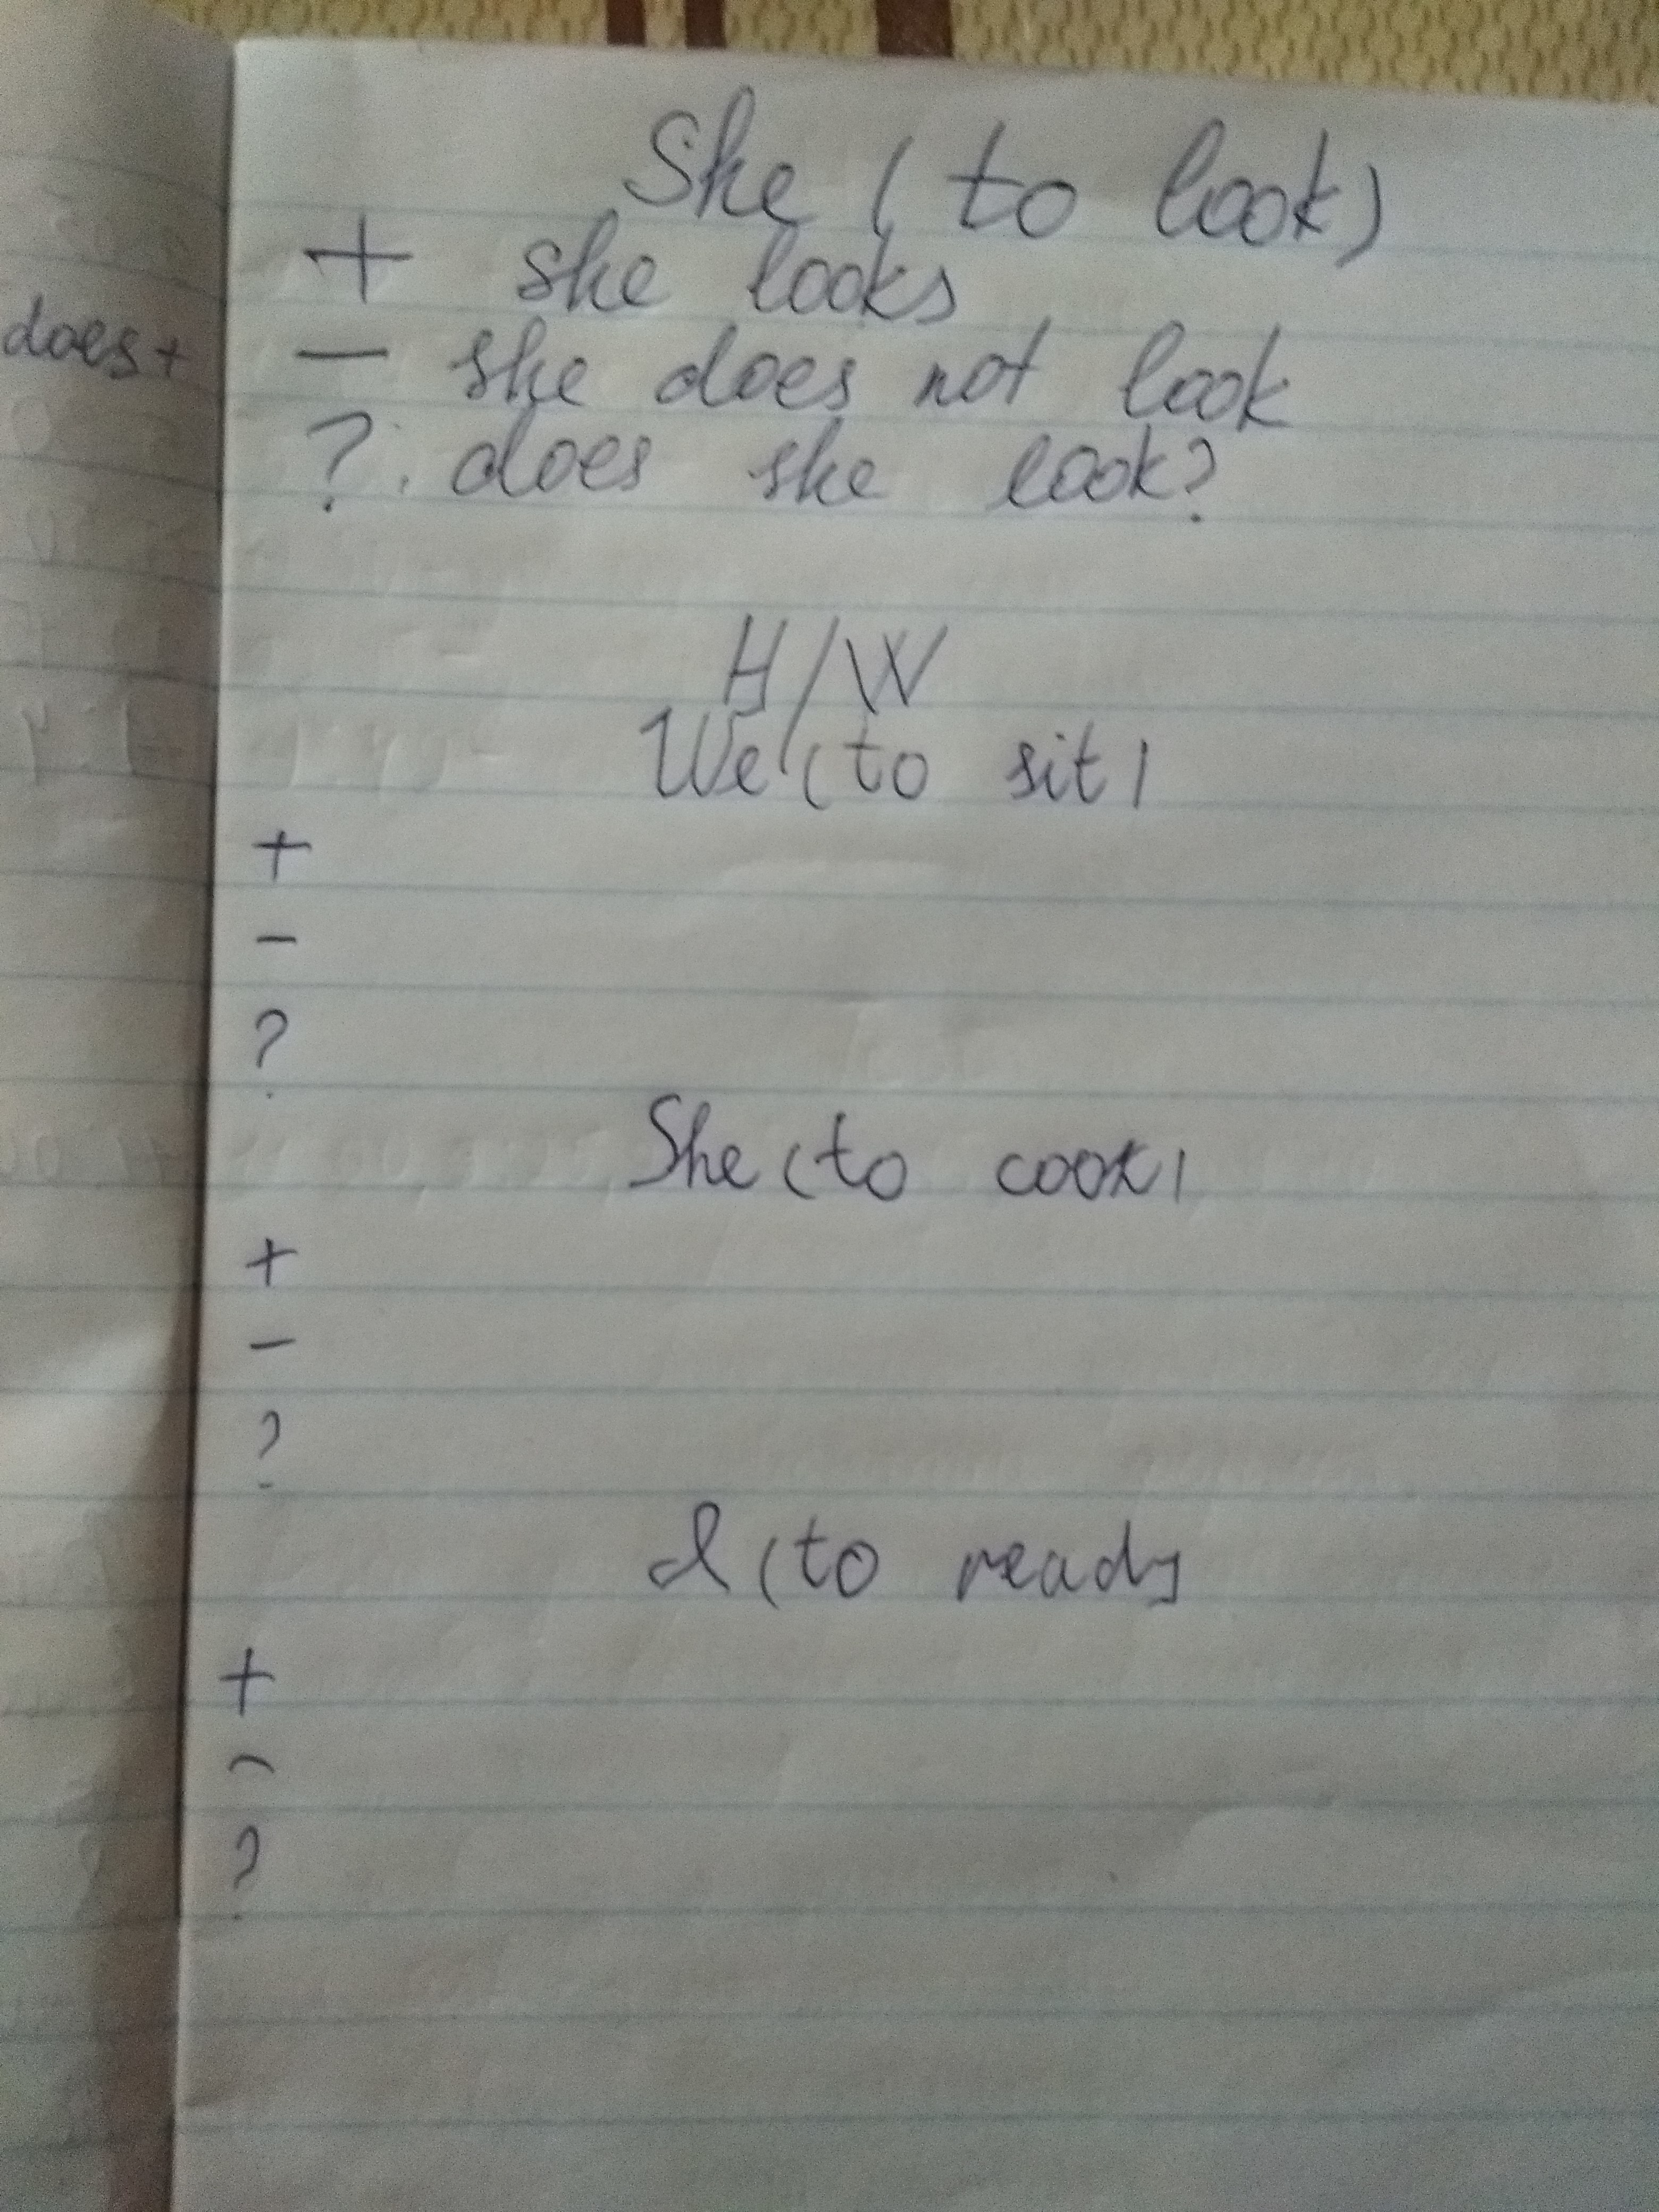 She (to look)
+ she looks
does+
— she does not look
?. does she look?
H/W
We (to sit)
+
-
?
She (to cook)
+
-
?
I (to read)
+
-
?